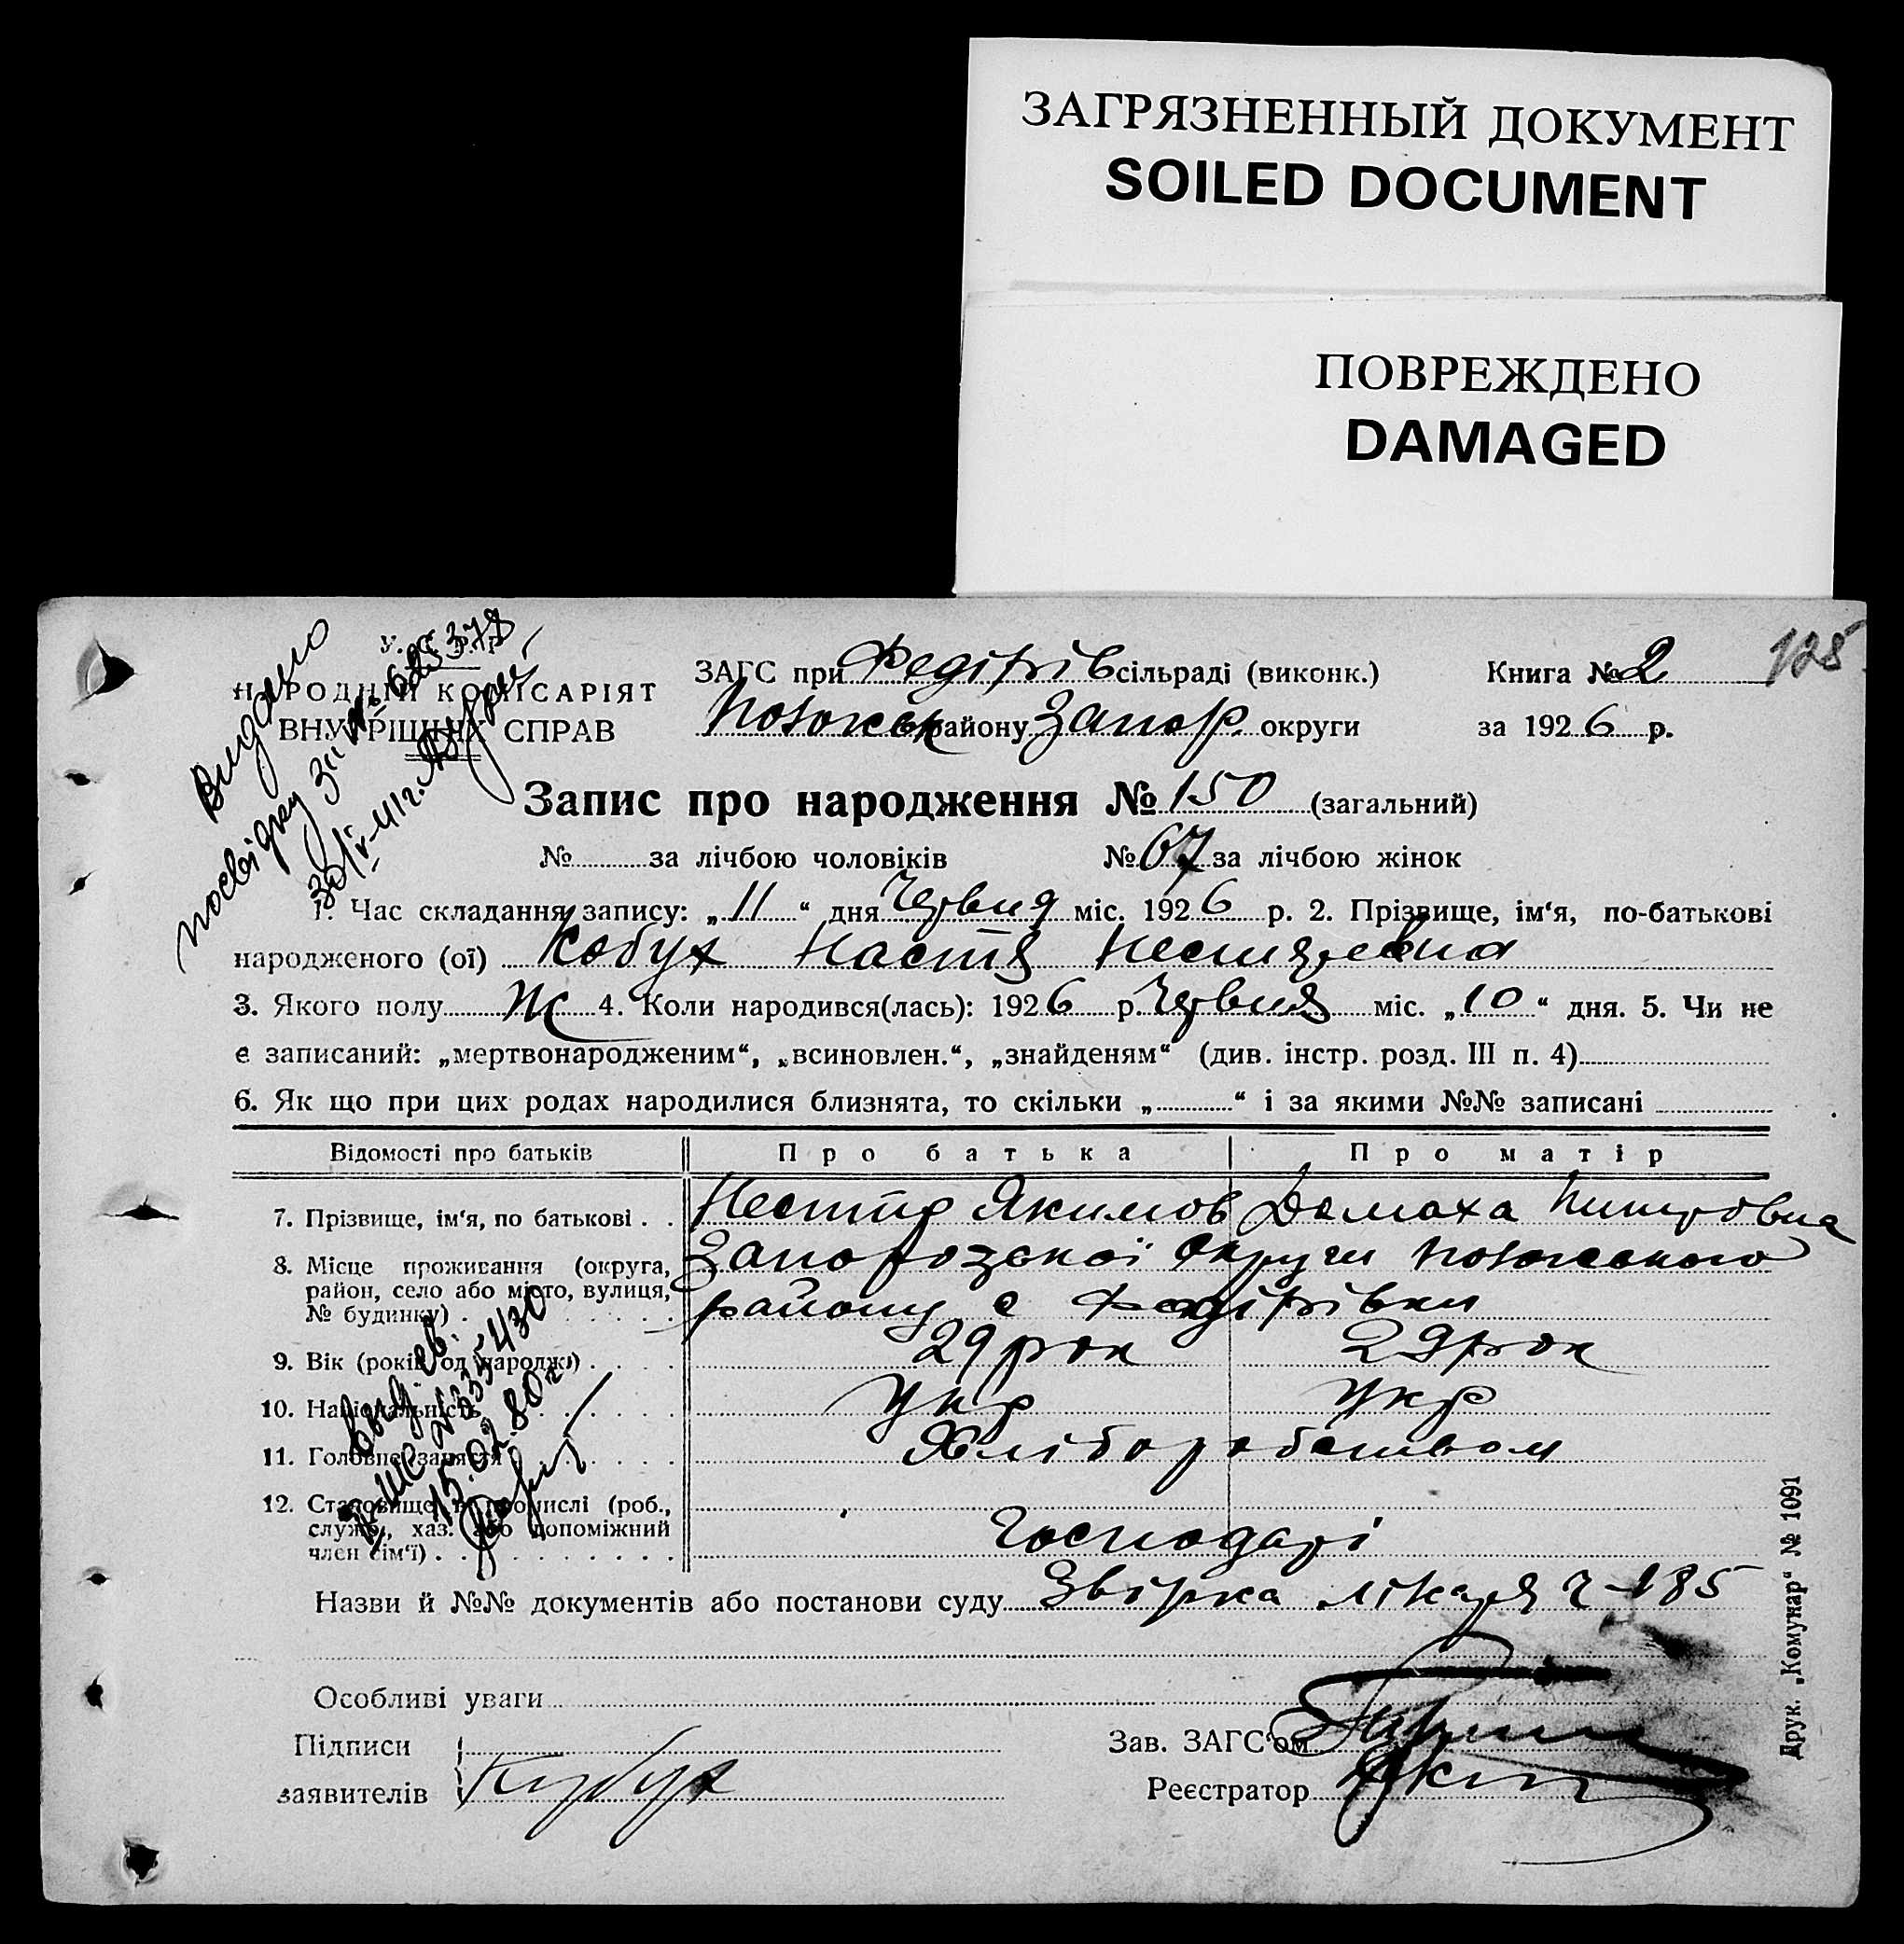 ЗАГРЯЗНЕННЫЙ ДОКУМЕНТ
SOILED DOCUMENT
ПОВРЕЖДЕНО
DAMAGED
125
У. С. Р. Р.
НАРОДНІЙ КОМІСАРІЯТ
ВНУТРІШНІХ СПРАВ
Видано
посвідку
ЗАГС при Федірів сільраді (виконк.)
району Запор. округи
Книга № 2
за 1926 р.
Запис про народження № 150 (загальний)
№ за лічбою чоловіків № 67 за лічбою жінок
1. Час складання запису: „11“ дня Червня міс. 1926 р. 2. Прізвище, ім‘я, по-батькові
народженого (ої) Кобух Настя Несторовна
3. Якого полу Ж 4. Коли народився(лась): 1926 р. Червня міс. „10“ дня. 5. Чи не
є записаний: „мертвонародженим“, „всиновлен.“, „знайденям“ (див. інстр. розд. III п. 4)
6. Як що при цих родах народилися близнята, то скільки „ “ і за якими №№ записані
Відомості про батьків Про батька Про матір
7. Прізвище, ім‘я, по батькові . . Нестір Якимов Домаха
8. Місце проживання (округа, район, село або місто, вулиця, № будинку) Запорозської Округи
району с Федірівки
9. Вік (років од народж.) 29 рок 29 рок
10. Національність Укр Укр
11. Головне заняття Хліборобством
12. Становище в промислі (роб., служб., хаз. або допоміжний член сім‘ї) Господарі
15.02.80г.
Назви й №№ документів або постанови суду Звірка лікаря ч 185
Особливі уваги
Підписи
заявителів Кубух
Зав. ЗАГС‘ом
Реєстратор
Друк. „Комунар“ № 1091